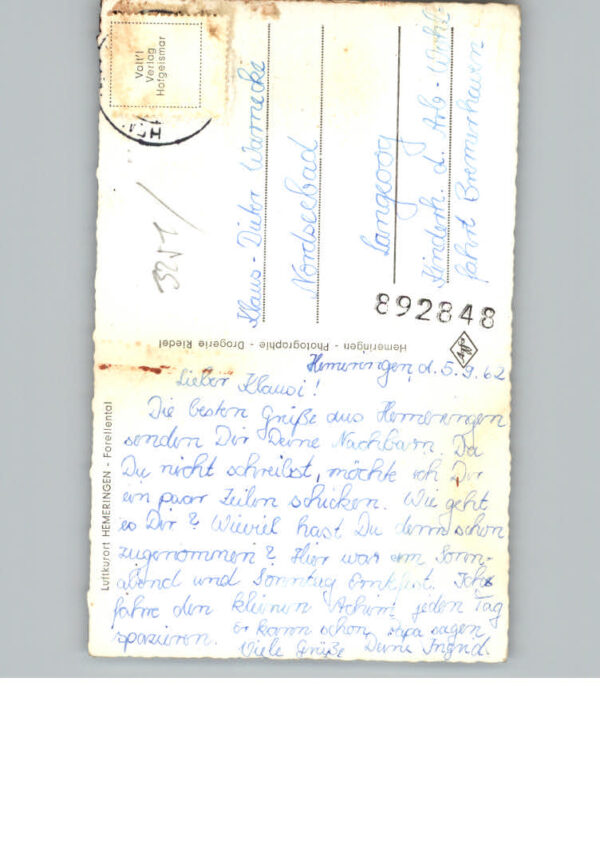 Valt'l
Verlag
Hofgeismar
3251
Klaus-Dieter Warnecki
Nordseebad
Langeoog
Kinderh. d. Arb-Wohl
fahrt Bremerhaven
892848
Agfa
Hemeringen - Photographie - Drogerie Riedel
Luftkurort HEMERINGEN - Forellental
Hemeringen, d. 5.9.62
Lieber Klausi!
Die besten Grüße aus Hemeringen
senden Dir Deine Nachbarn. Da
Du nicht schreibst, möchte ich Dir
ein paar Zeilen schicken. Wie geht
es Dir? Wieviel hast Du denn schon
zugenommen? Hier war am Sonn-
abend und Sonntag Erntefest. Ich
fahre den kleinen Achim jeden Tag
spazieren. Er kann schon Papa sagen
Viele Grüße Deine Ingrid.